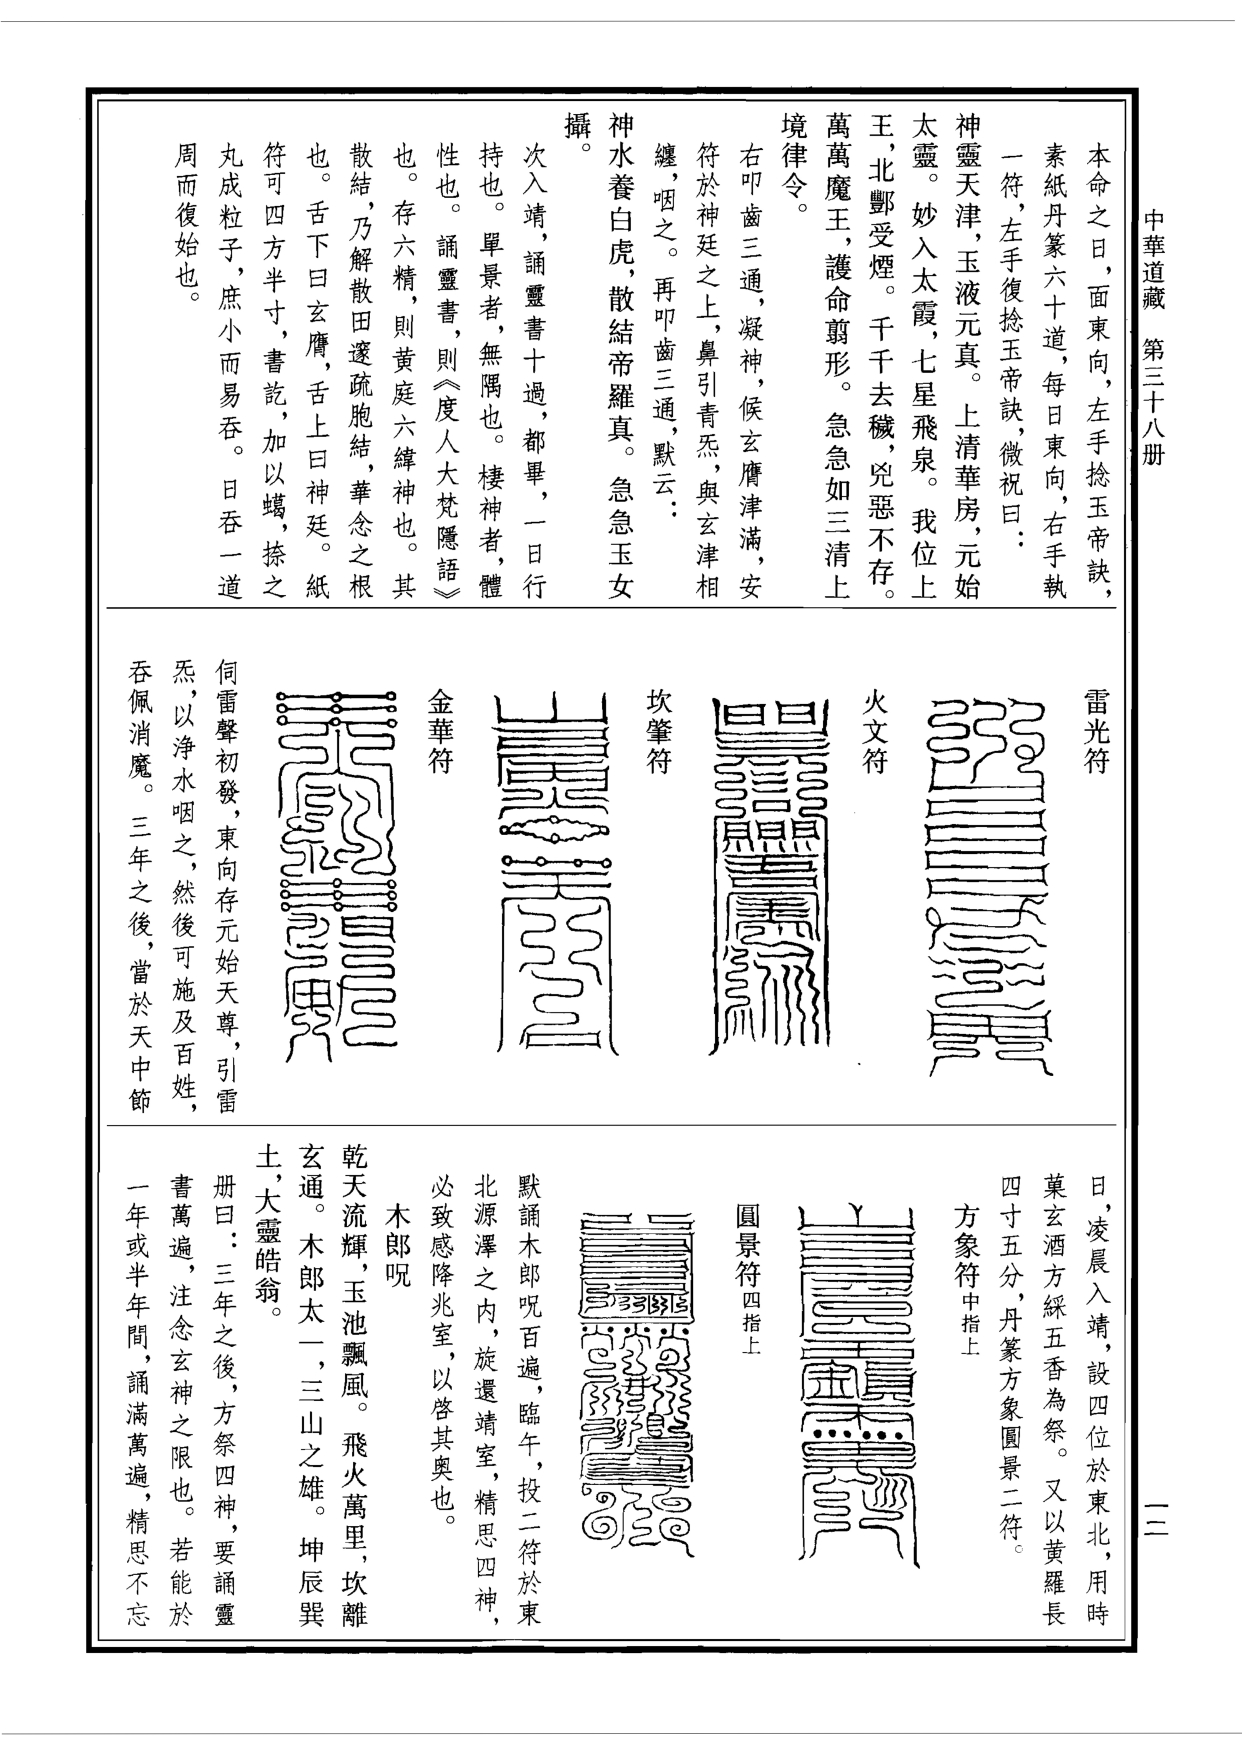 中華道藏　第三十八册
一二
本命之日，面東向，左手捻玉帝訣，
素紙丹篆六十道，每日東向，右手執
一符，左手復捻玉帝訣，微祝曰：
神靈天津，玉液元真。上清華房，元始
太靈。妙入太霞，七星飛泉。我位上
王，北酆受煙。千千去穢，兇惡不存。
萬萬魔王，護命翦形。急急如三清上
境律令。
右叩齒三通，凝神，候玄膺津滿，安
符於神廷之上，鼻引青炁，與玄津相
纏，咽之。再叩齒三通，默云：
神水養白虎，散結帝羅真。急急玉女
攝。
次入靖，誦靈書十過，都畢，一日行
持也。單景者，無隅也。棲神者，體
性也。誦靈書，則《度人大梵隱語》
也。存六精，則黄庭六緯神也。其
散結，乃解散田邃疏胞結，華念之根
也。舌下曰玄膺，舌上曰神廷。紙
符可四方半寸，書訖，加以蠟，捺之
丸成粒子，庶小而易吞。日吞一道
周而復始也。
雷光符
火文符
坎肇符
金華符
伺雷聲初發，東向存元始天尊，引雷
炁，以净水咽之，然後可施及百姓，
吞佩消魔。三年之後，當於天中節
日，凌晨入靖，設四位於東北，用時
菓玄酒方綵五香為祭。又以黄羅長
四寸五分，丹篆方象圓景二符。
方象符中指上
圓景符四指上
默誦木郎呪百遍，臨午，投二符於東
北源澤之内，旋還靖室，精思四神，
必致感降兆室，以啓其奥也。
木郎呪
乾天流輝，玉池飄風。飛火萬里，坎離
玄通。木郎太一，三山之雄。坤辰巽
土，大靈皓翁。
册曰：三年之後，方祭四神，要誦靈
書萬遍，注念玄神之限也。若能於
一年或半年間，誦滿萬遍，精思不忘